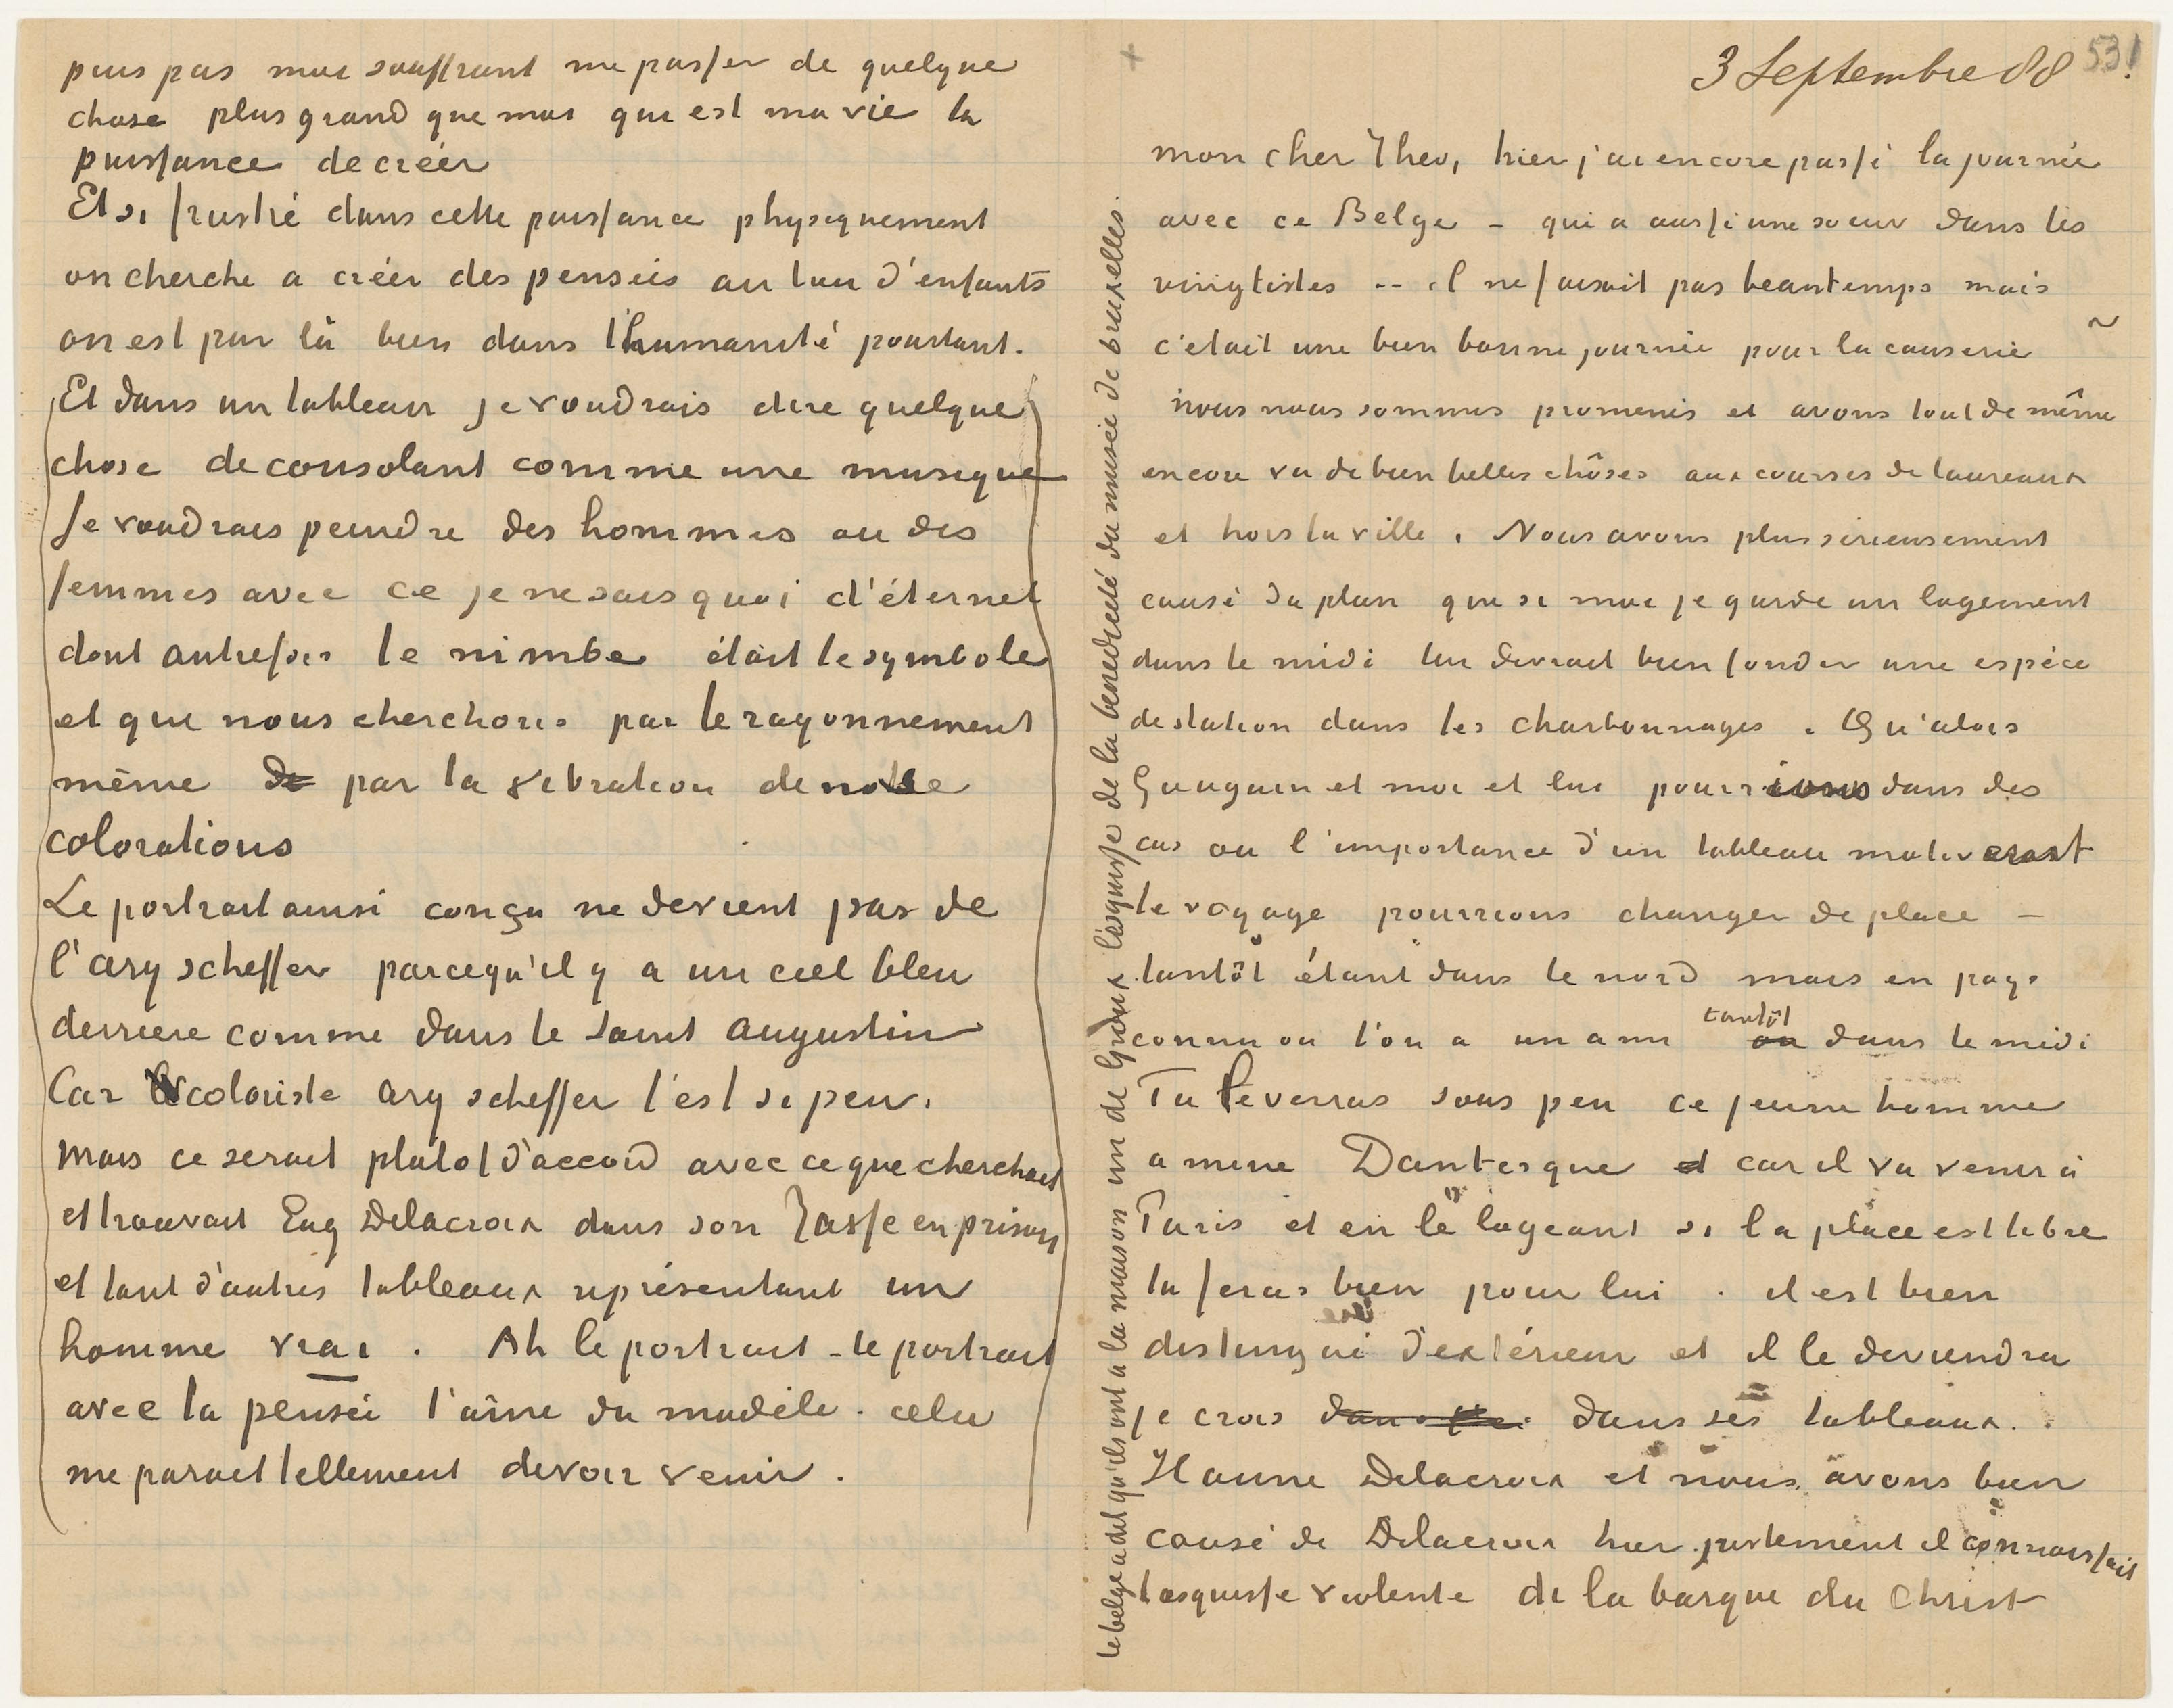 puis pas moi souffrant me passer de quelque
chose plus grand que moi qui est ma vie la
puissance de créer
Et si frustré dans cette puissance physiquement
on cherche a créer des pensées au lieu d'enfants
on est par là bien dans l'humanité pourtant.
Et dans un tableau je voudrais dire quelque
chose de consolant comme une musique
Je voudrais peindre des hommes ou des
femmes avec ce je ne sais quoi d'éternel
dont autrefois le nimbe était le symbole
et que nous cherchons par le rayonnement
même de par la vibration de notre
colorations
Le portrait ainsi conçu ne devient pas de
l'ary scheffer parcequ'il y a un ciel bleu
derriere comme dans le saint augustin
Car coloriste ary scheffer l'est si peu.
Mais ce serait plutot d'accord avec ce que cherchait
et trouvait Eug Delacroix dans son Tasse en prison
et tant d'autres tableaux représentant un
homme vrai. Ah le portrait - le portrait
avec la pensée l'âme du modèle. cela
me parait tellement devoir venir.
3 Septembre 88 531
mon cher Theo, hier j'ai encore passé la journée
avec ce Belge - qui a aussi une soeur dans les
vingtistes -- il ne faisait pas beau temps mais
c'etait une bien bonne journée pour la causerie
nous nous sommes promenés et avons tout de même
encore vu de bien belles chôses aux courses de taureaux
et hors la ville. Nous avons plus serieusement
causé du plan que si moi je garde un logement
dans le midi lui devrait bien fonder une espèce
de station dans les charbonnages. Qu'alors
Gauguin et moi et lui pourrions dans des
cas ou l'importance d'un tableau motiverait
le voyage pourrions changer de place -
tantôt étant dans le nord mais en pays
connu ou l'on a un ami ou tantôt dans le midi
Tu le verras sous peu ce jeune homme
a mine Dantesque et car il va venir à
Paris et en le logeant si la place est libre
tu feras bien pour lui. il est bien
distingué d'extérieur et il le deviendra
je crois dans ses tableaux.
Il aime Delacroix et nous avons bien
causé de Delacroix hier. justement il connaissait
l'esquisse violente de la barque du Christ
le belge a dit qu'ils ont a la maison un de Groux l'esquisse de la benedicité du musée de bruxelles.